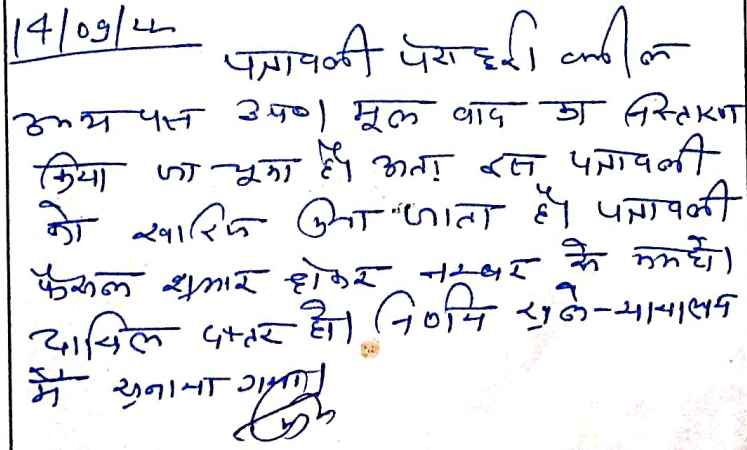 14/09/22
पत्रावली पेश हुई। वकील
उभय पक्ष उप०। मूल वाद का निस्तारण
किया जा चुका है। अतः इस पत्रावली
को खारिज किया जाता है। पत्रावली
फैसल शुमार होकर नम्बर से कम हो।
दाखिल दफ्तर हो। निर्णय खुले न्यायालय
में सुनाया गया।